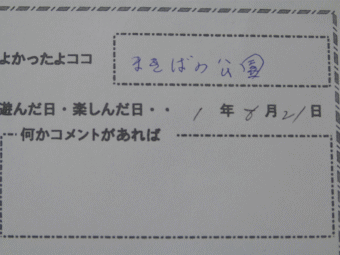 よかったよココ まきばの公園
遊んだ日・楽しんだ日・・ 1年8月21日
何かコメントがあれば